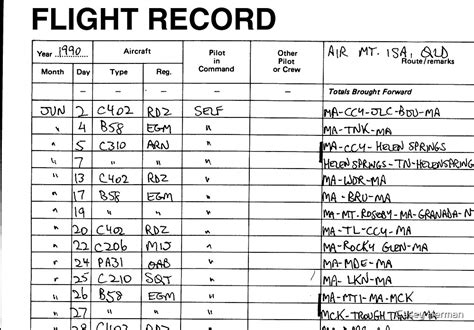 FLIGHT RECORD
Year 1990 Aircraft Pilot in Command Other Pilot or Crew AIR MT. ISA, QLD Route/remarks
Month Day Type Reg.
Totals Brought Forward
JUN 2 C402 RDZ SELF MA-CCY-JLC-BDU-MA
" 4 B58 EGM " MA-TNK-MA
" 5 C310 ARN " MA-CCY-HELEN SPRINGS
" 7 " " " HELEN SPRINGS-TN-HELENSPRING
" 13 C402 RDZ " MA-WDR-MA
" 17 B58 EGM " MA-BRU-MA
" 19 " " " MA-MT. ROSEBY-MA-GRANADA-N
" 20 C402 RDZ " MA-TL-CCY-MA
" 22 C206 MIJ " MA-ROCKY GLEN-MA
" 24 PA31 OAB " MA-MDE-MA
" 25 C210 SQT " MA-LKN-MA
" 26 B58 EGM " MA-MTI-MA-MCK
" 27 " " " MCK-TROUGH TANK-MA
" 28 C402 RDZ "